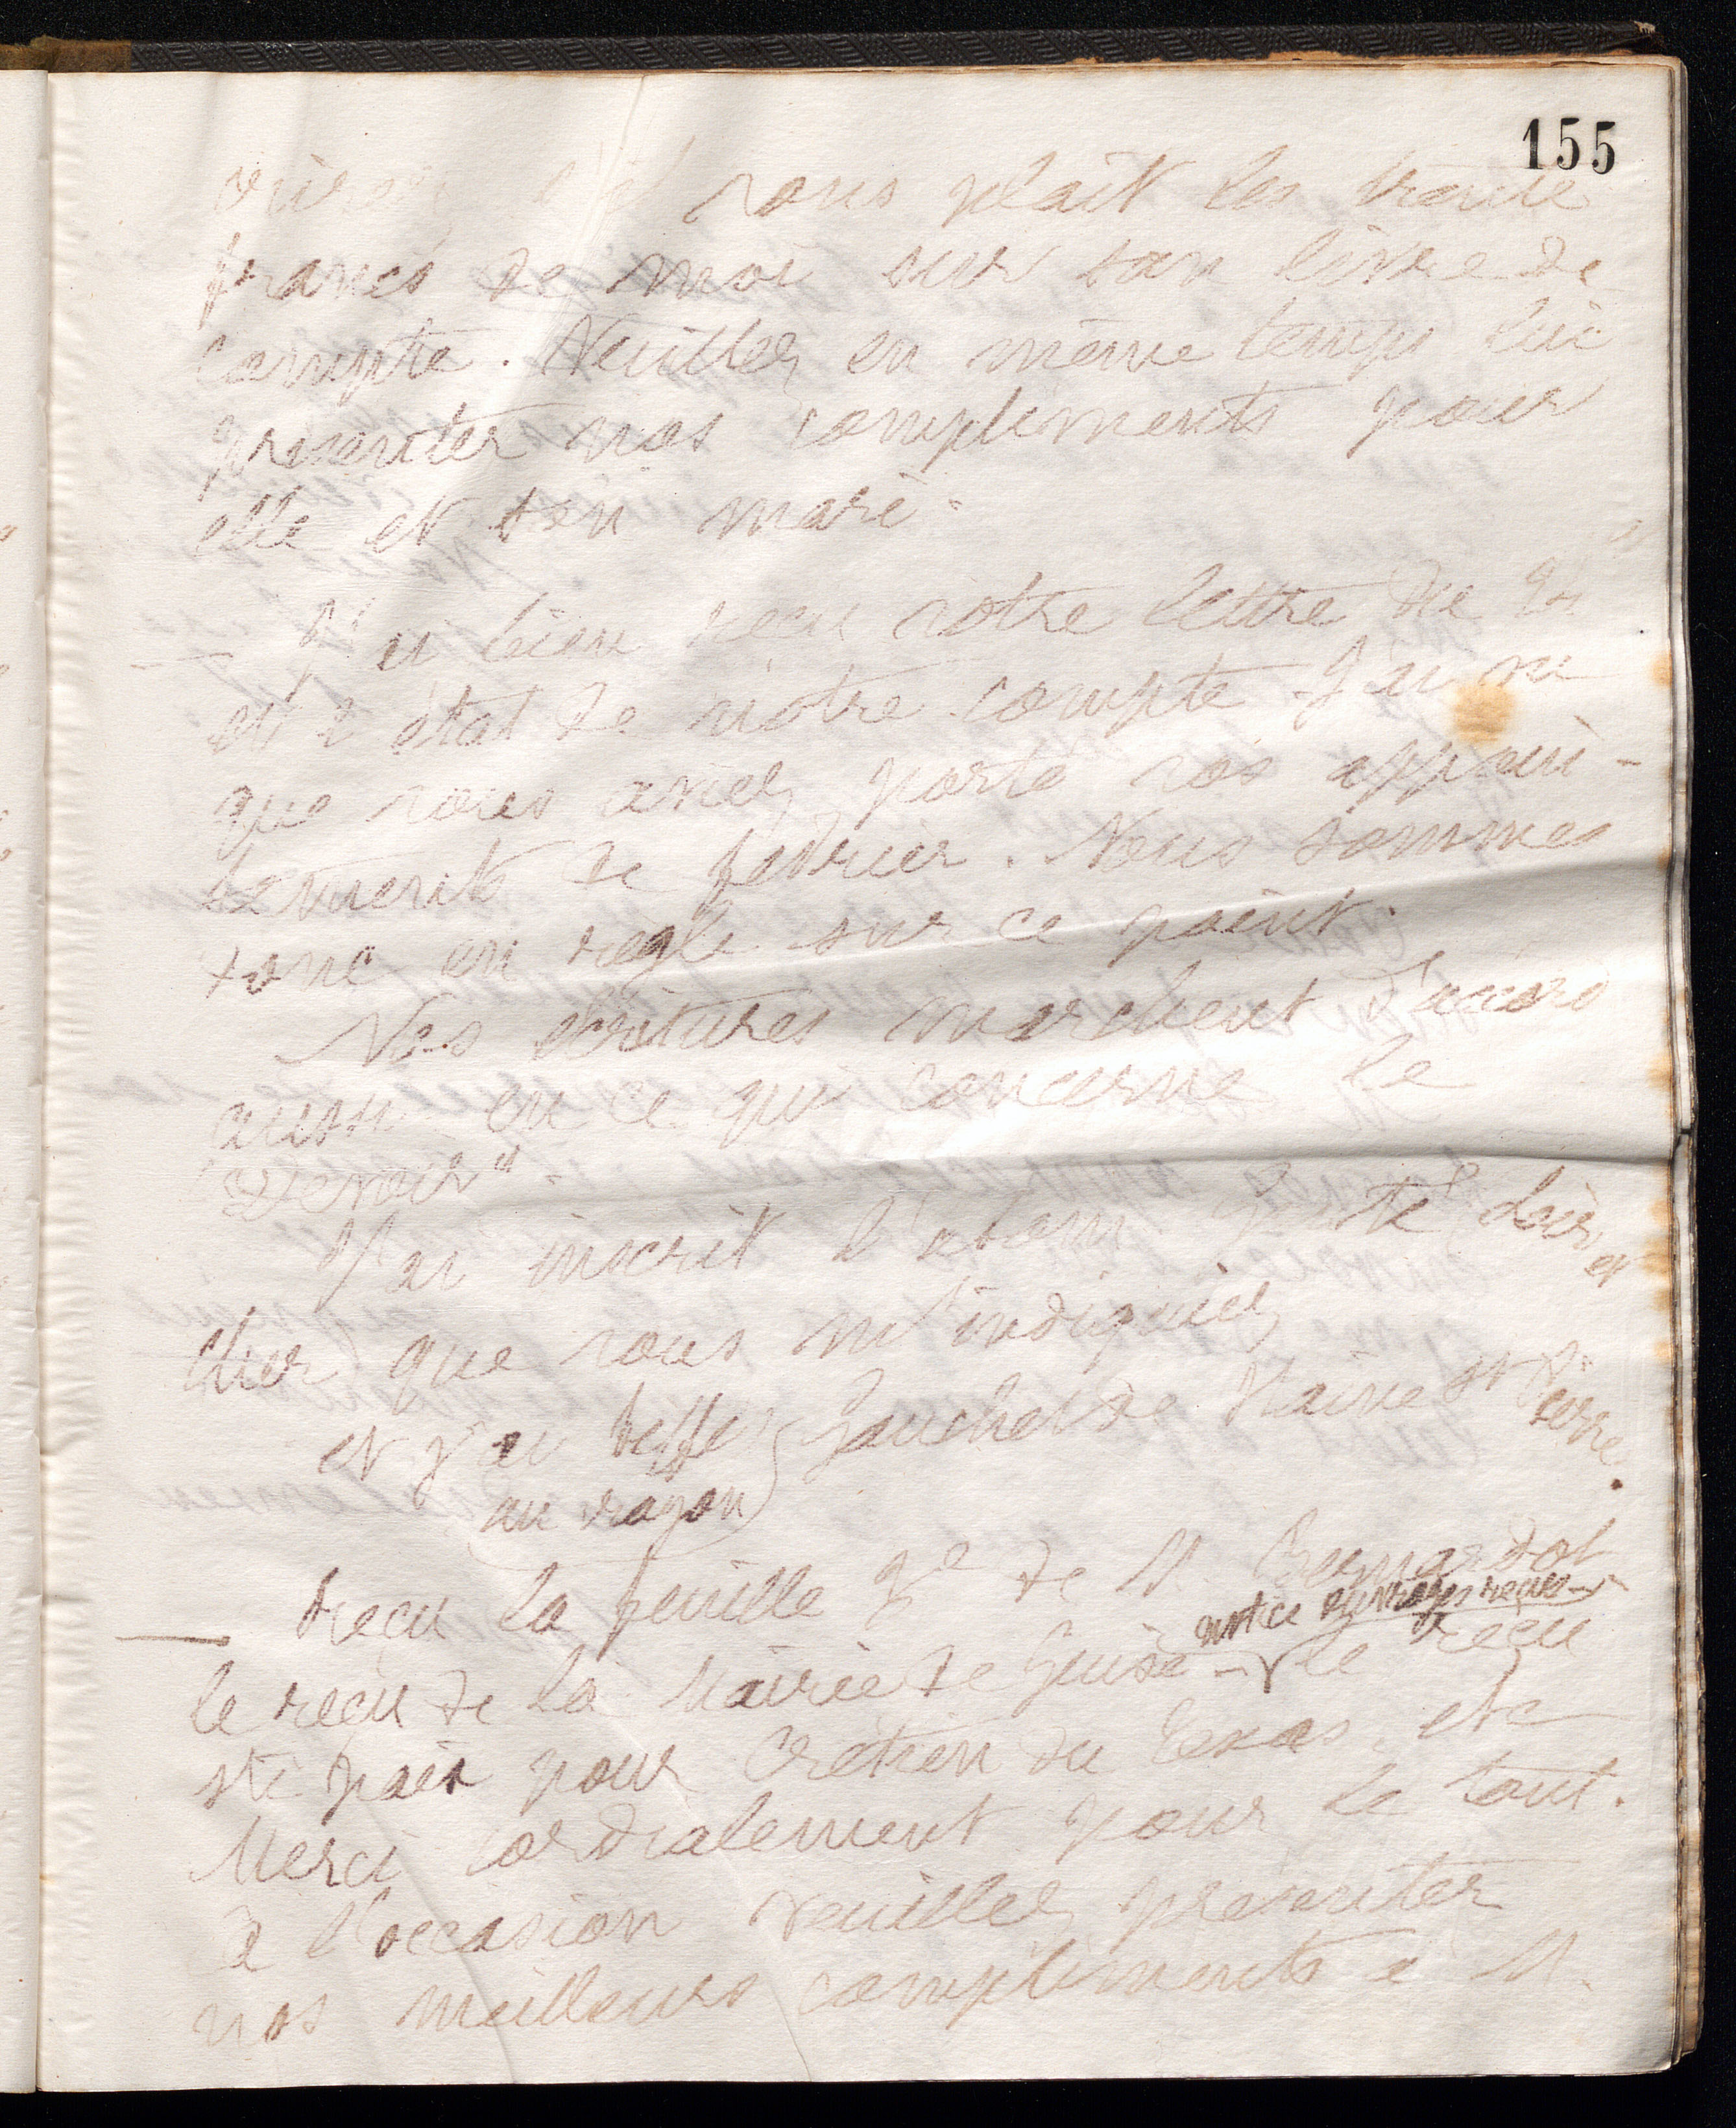 155
s'il vous plait les trente
francs de moi sur son livre de
compte. Veuillez en même temps lui
présenter nos compliments pour
elle et son mari.
— J'ai bien reçu votre lettre du
et l'état de notre compte. J'ai vu
que vous aviez porté vos appoin-
tements de février. Nous sommes
donc en règle sur ce point.
Nos écritures marchent d'accord
aussi en ce qui concerne le
"Devoir".
J'ai inscrit l'abon.
que vous m'indiquiez
et j'ai biffé Gauchet de Haine St Pierre.
au crayon)
— Reçu la feuille de M. Bernardot
notice ouvrages reçus
le reçu de la Mairie de Guise — le reçu
Sté paix pour Crétien du Texas, etc
Merci cordialement pour le tout.
à l'occasion veuillez présenter
nos meilleurs compliments à M.